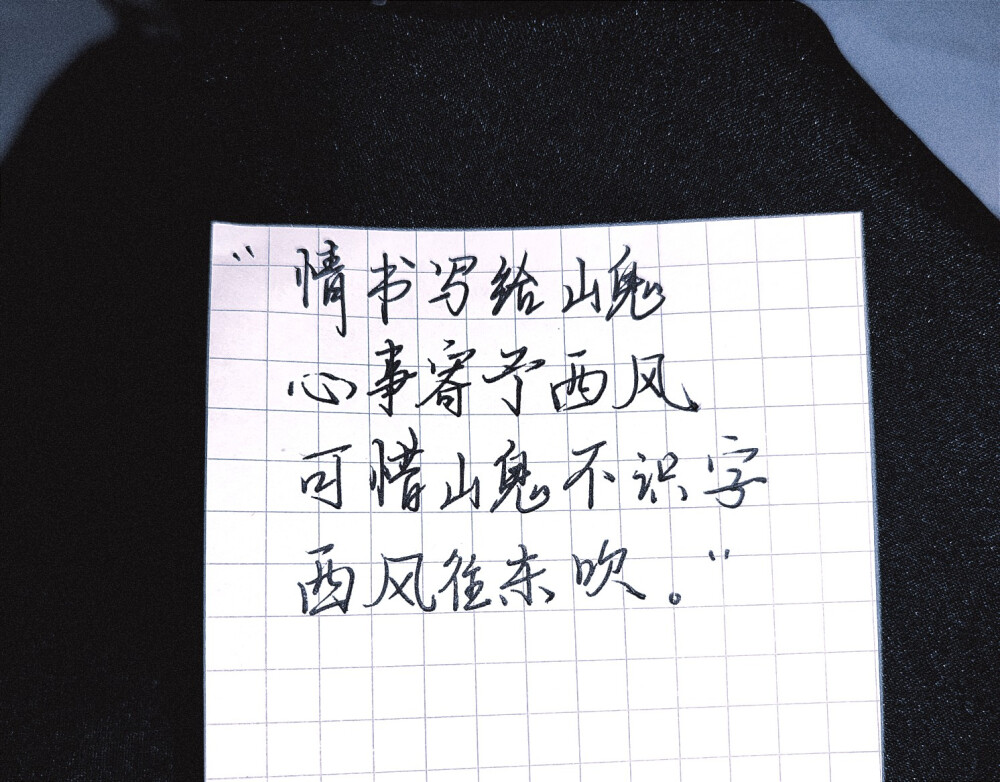 “情书写给山鬼
心事寄予西风
可惜山鬼不识字
西风往东吹。”